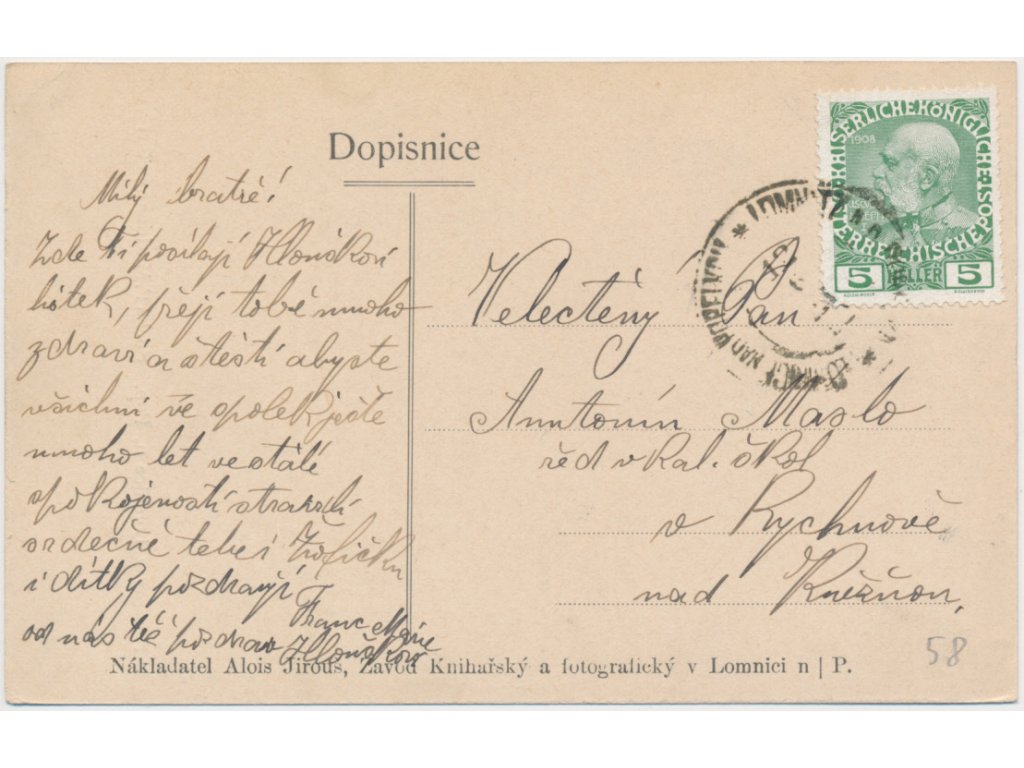 Dopisnice
Milý bratře!
Zde Ti posílají Hlouškovi
lístek, přejí tobě mnoho
zdraví a štěstí abyste
všichni ve spolek ještě
mnoho let ve stálé
spokojenosti strávili
srdečně tebe i Žofičku
i dítky pozdravují
Franc Marie
od nás též pozdrav
Velectěný Pan
Anntonín Maslo
řed v kal. škol
v Rychnově
nad Kněžnou,
58
KAISERLICHE KÖNIGLICHE
ÖSTERREICHISCHE POST
1908
5 HELLER 5
LOMNITZ A. D.
LOMNICE NAD POPELKOU
12
Nákladatel Alois Jirouš, Závod Knihařský a fotografický v Lomnici n | P.